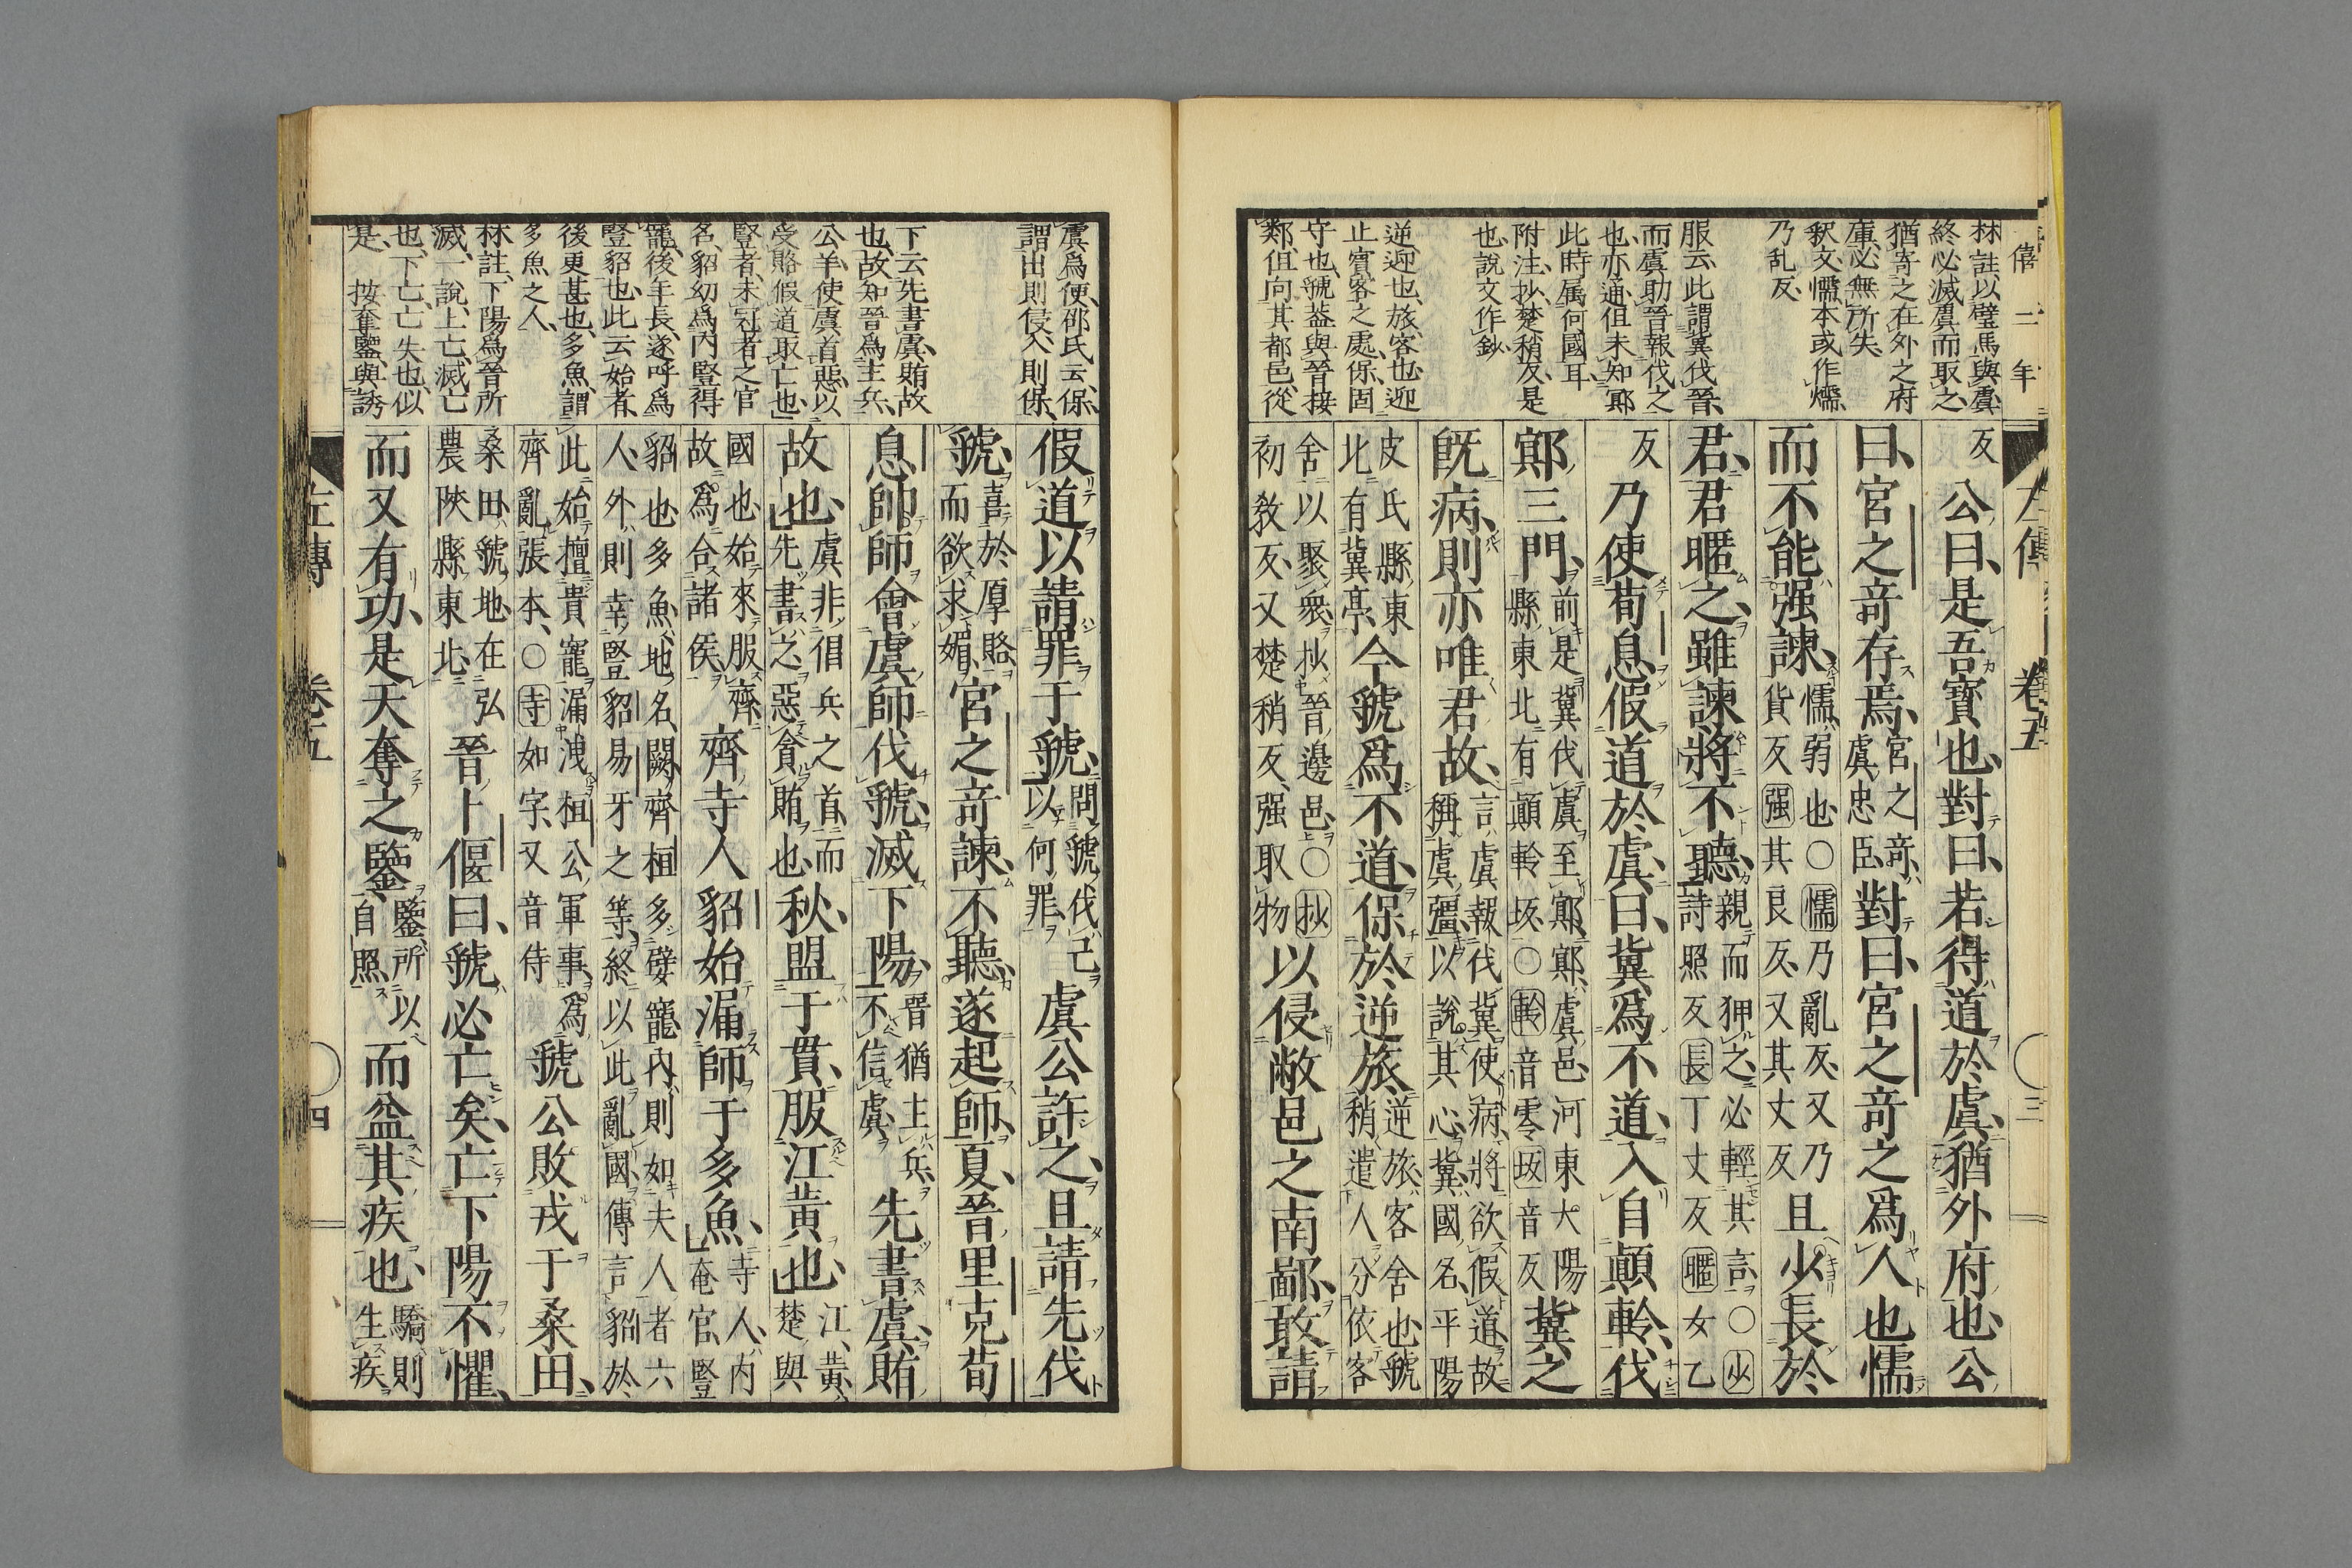 僖二年
林註以璧馬與虞
終必滅虞而取之
猶寄之在外之府
庫必無所失
釈文懦本或作㦬
乃乱反
服云此謂冀伐晉
而虞助晉報伐之
也亦通但未知鄍
此時属何國耳
附注抄楚稍反是
也説文作鈔
逆迎也旅客也迎
止賓客之處保固
守也虢葢與晉接
鄰但向其都邑從
左傳 卷五 三
反公曰是吾寳也對曰若得道於虞猶外府也公
曰宮之竒存焉宮之竒虞忠臣對曰宮之竒之爲人也懦
而不能强諫懦弱也○懦乃亂反又乃貨反强其良反又其丈反且少長於
君君暱之雖諫將不聽親而狎之必輕其言○少詩照反長丁丈反暱女乙
反乃使荀息假道於虞曰冀爲不道入自顚軨伐
鄍三門前是冀伐虞至鄍鄍虞邑河東大陽縣東北有顚軨坂○軨音零坂音反冀之
既病則亦唯君故言虞報伐冀使病將欲假道故稱虞彊以說其心冀國名平陽
皮氏縣東北有冀亭今虢爲不道保於逆旅逆旅客舍也虢稍遣人分依客
舍以聚衆抄晉邊邑○抄初敎反又楚稍反强取物以侵敝邑之南鄙敢請
虞爲便邵氏云保
謂出則侵入則保
下云先書虞賄故
也故知晉爲主兵
公羊使虞首惡以
受賂假道取亡也
豎者未冠者之官
名貂幼爲内豎得
寵後年長遂呼爲
豎貂也此云始者
後更甚也多魚謂
多魚之人
林註下陽爲晉所
滅一說上亡滅亡
也下亡亡失也似
是 按奪鑒與誘
假道以請罪于虢問虢伐己以何罪虞公許之且請先伐
虢喜於厚賂而欲求媚宮之竒諫不聽遂起師夏晉里克荀
息帥師會虞師伐虢滅下陽晉猶主兵不信虞先書虞賄
故也虞非倡兵之首而先書之惡貪賄也秋盟于貫服江黄也江黄楚與
國也始來服齊故爲合諸侯齊寺人貂始漏師于多魚寺人内奄官豎
貂也多魚地名闕齊桓多嬖寵内則如夫人者六人外則幸豎貂易牙之等終以此亂國傳言貂於
此始擅貴寵漏洩桓公軍事爲齊亂張本○寺如字又音侍虢公敗戎于桑田
桑田虢地在弘農陜縣東北晉卜偃曰虢必亡矣亡下陽不懼
而又有功是天奪之鑒鑒所以自照而益其疾也驕則生疾
左傳 卷五 四